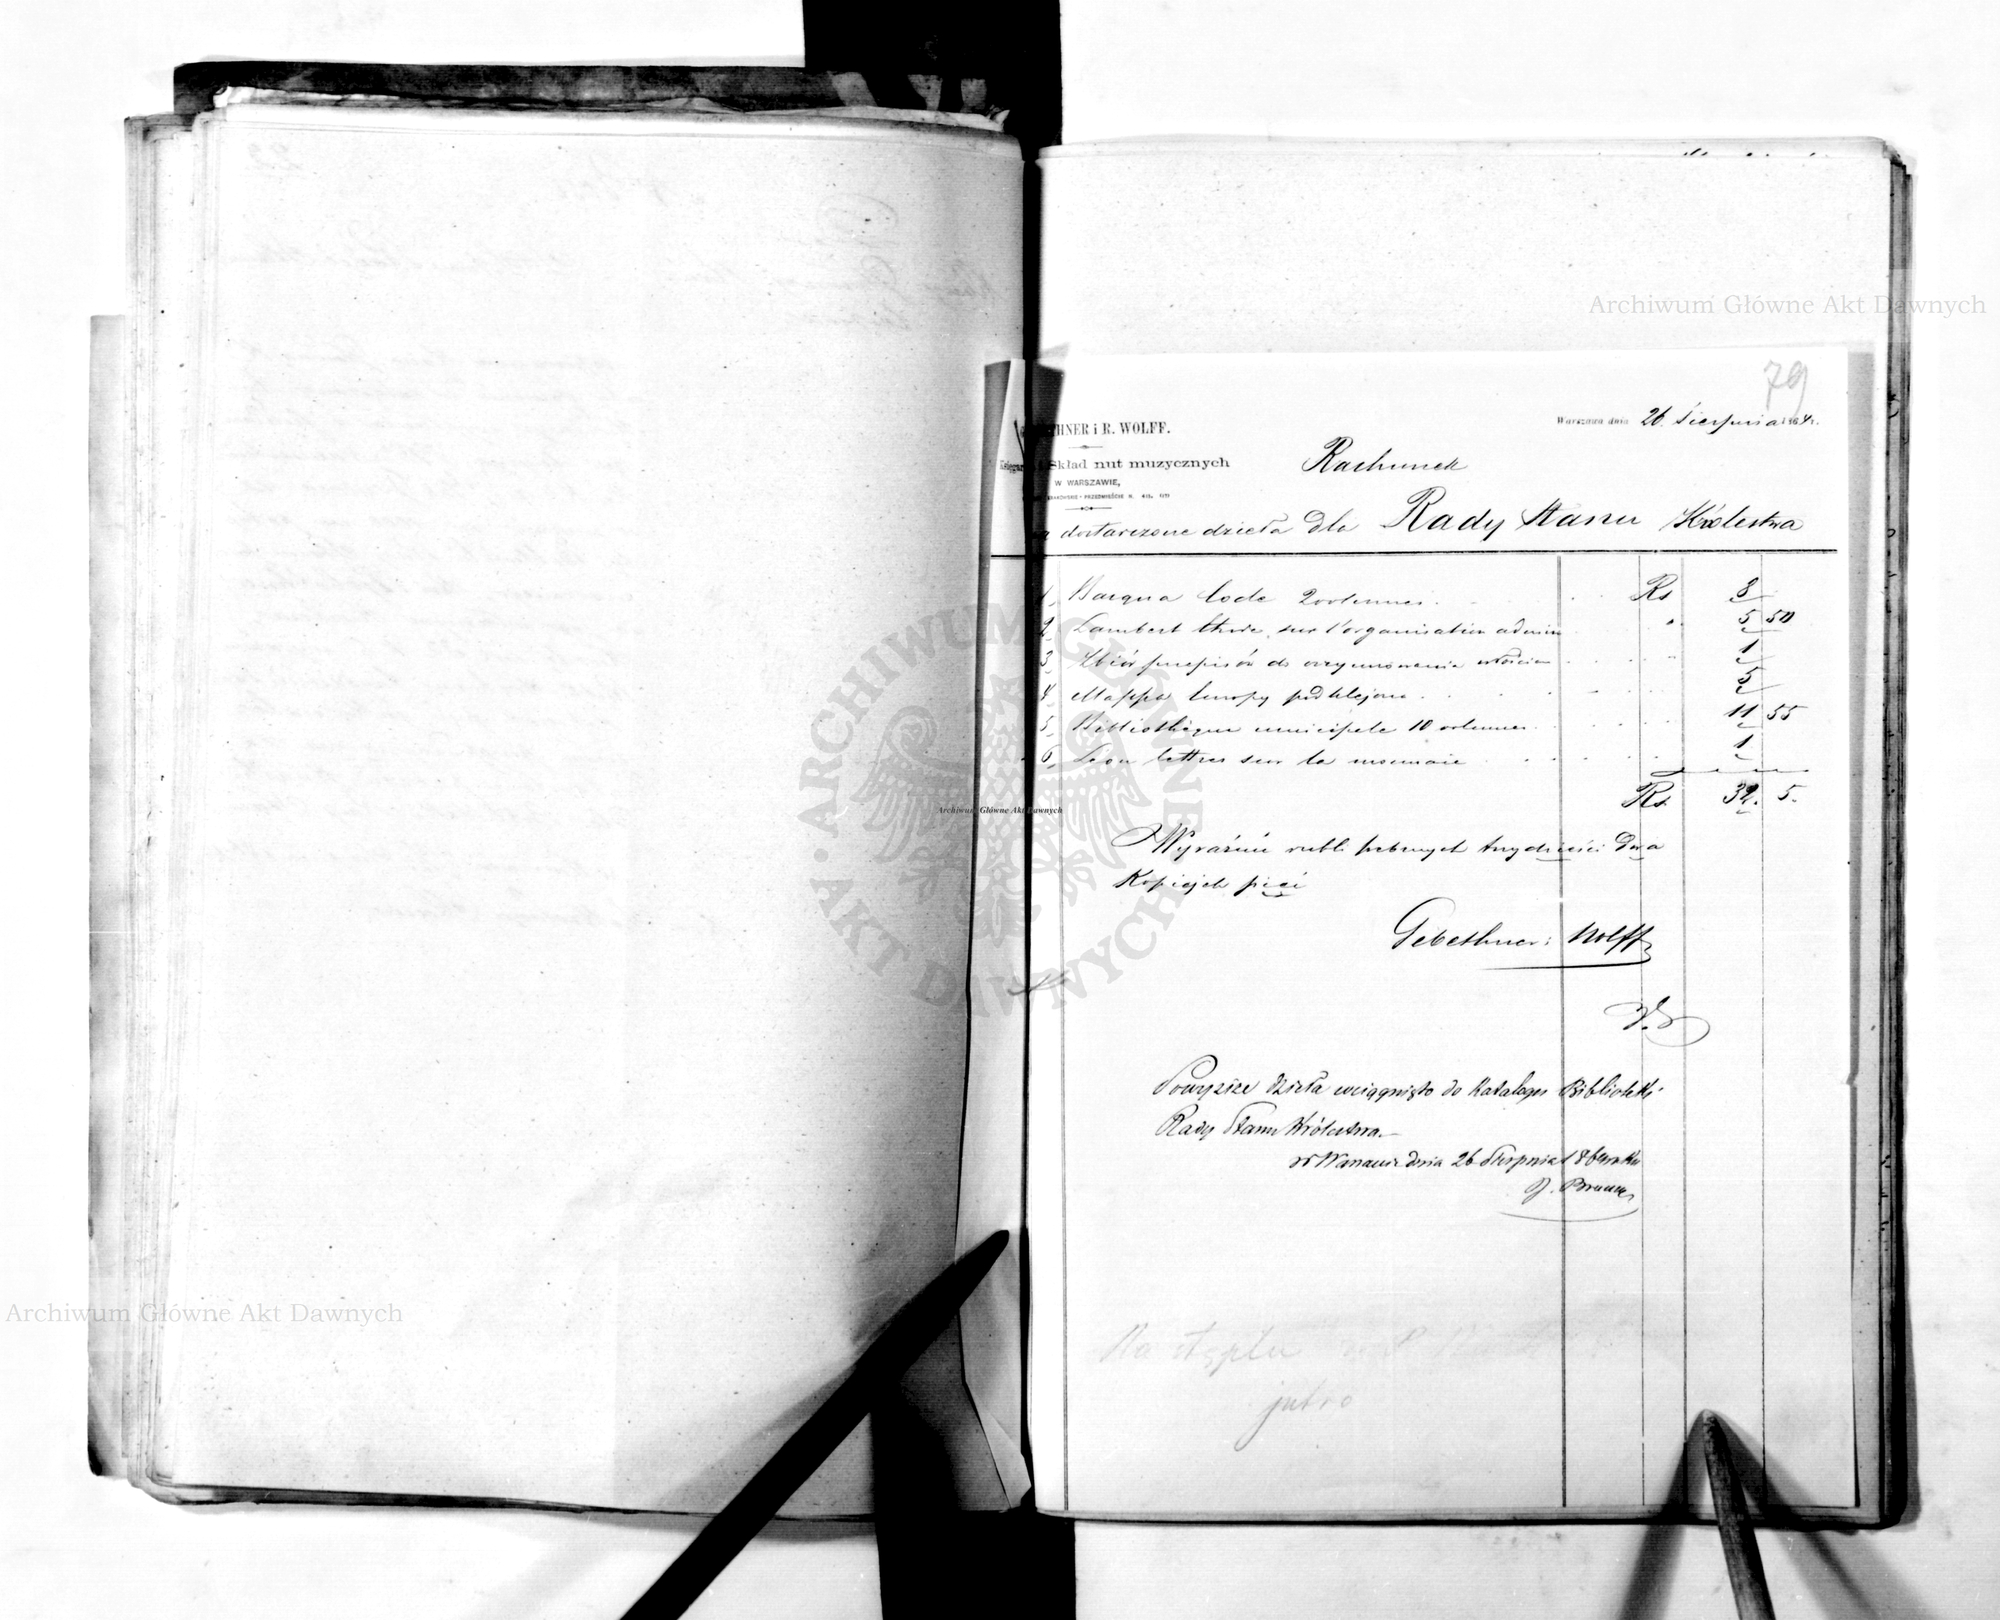 79
THNER i R. WOLFF.
Skład nut muzycznych
W WARSZAWIE,
KRAKOWSKIE-PRZEDMIEŚCIE N. 415.
Warszawa dnia 26 Sierpnia 1864 r.
Rachunek
dostarczone dzieła dla Rady Stanu Królestwa
1, Code 2 volumes Rs 8
2, Lambert sur l'organisation admin 5 50
3, Zbiór przepisów do 1
4, Mappa Europy podklejona 5
5, Bibliothèque municipale 10 volumes 11 55
6, Léon lettres sur la monnaie 1
Rs. 32. 5.
Wyraźnie rubli srebrnych trzydzieści dwa
Kopiejek pięć
Gebethner i Wolff
Powyższe dzieła wciągnięto do Katalogu Biblioteki
Rady Stanu Królestwa.
w Warszawie dnia 26 Sierpnia 1864 roku
jutro
Archiwum Główne Akt Dawnych
Archiwum Główne Akt Dawnych
Archiwum Główne Akt Dawnych
ARCHIWUM GŁÓWNE AKT DAWNYCH